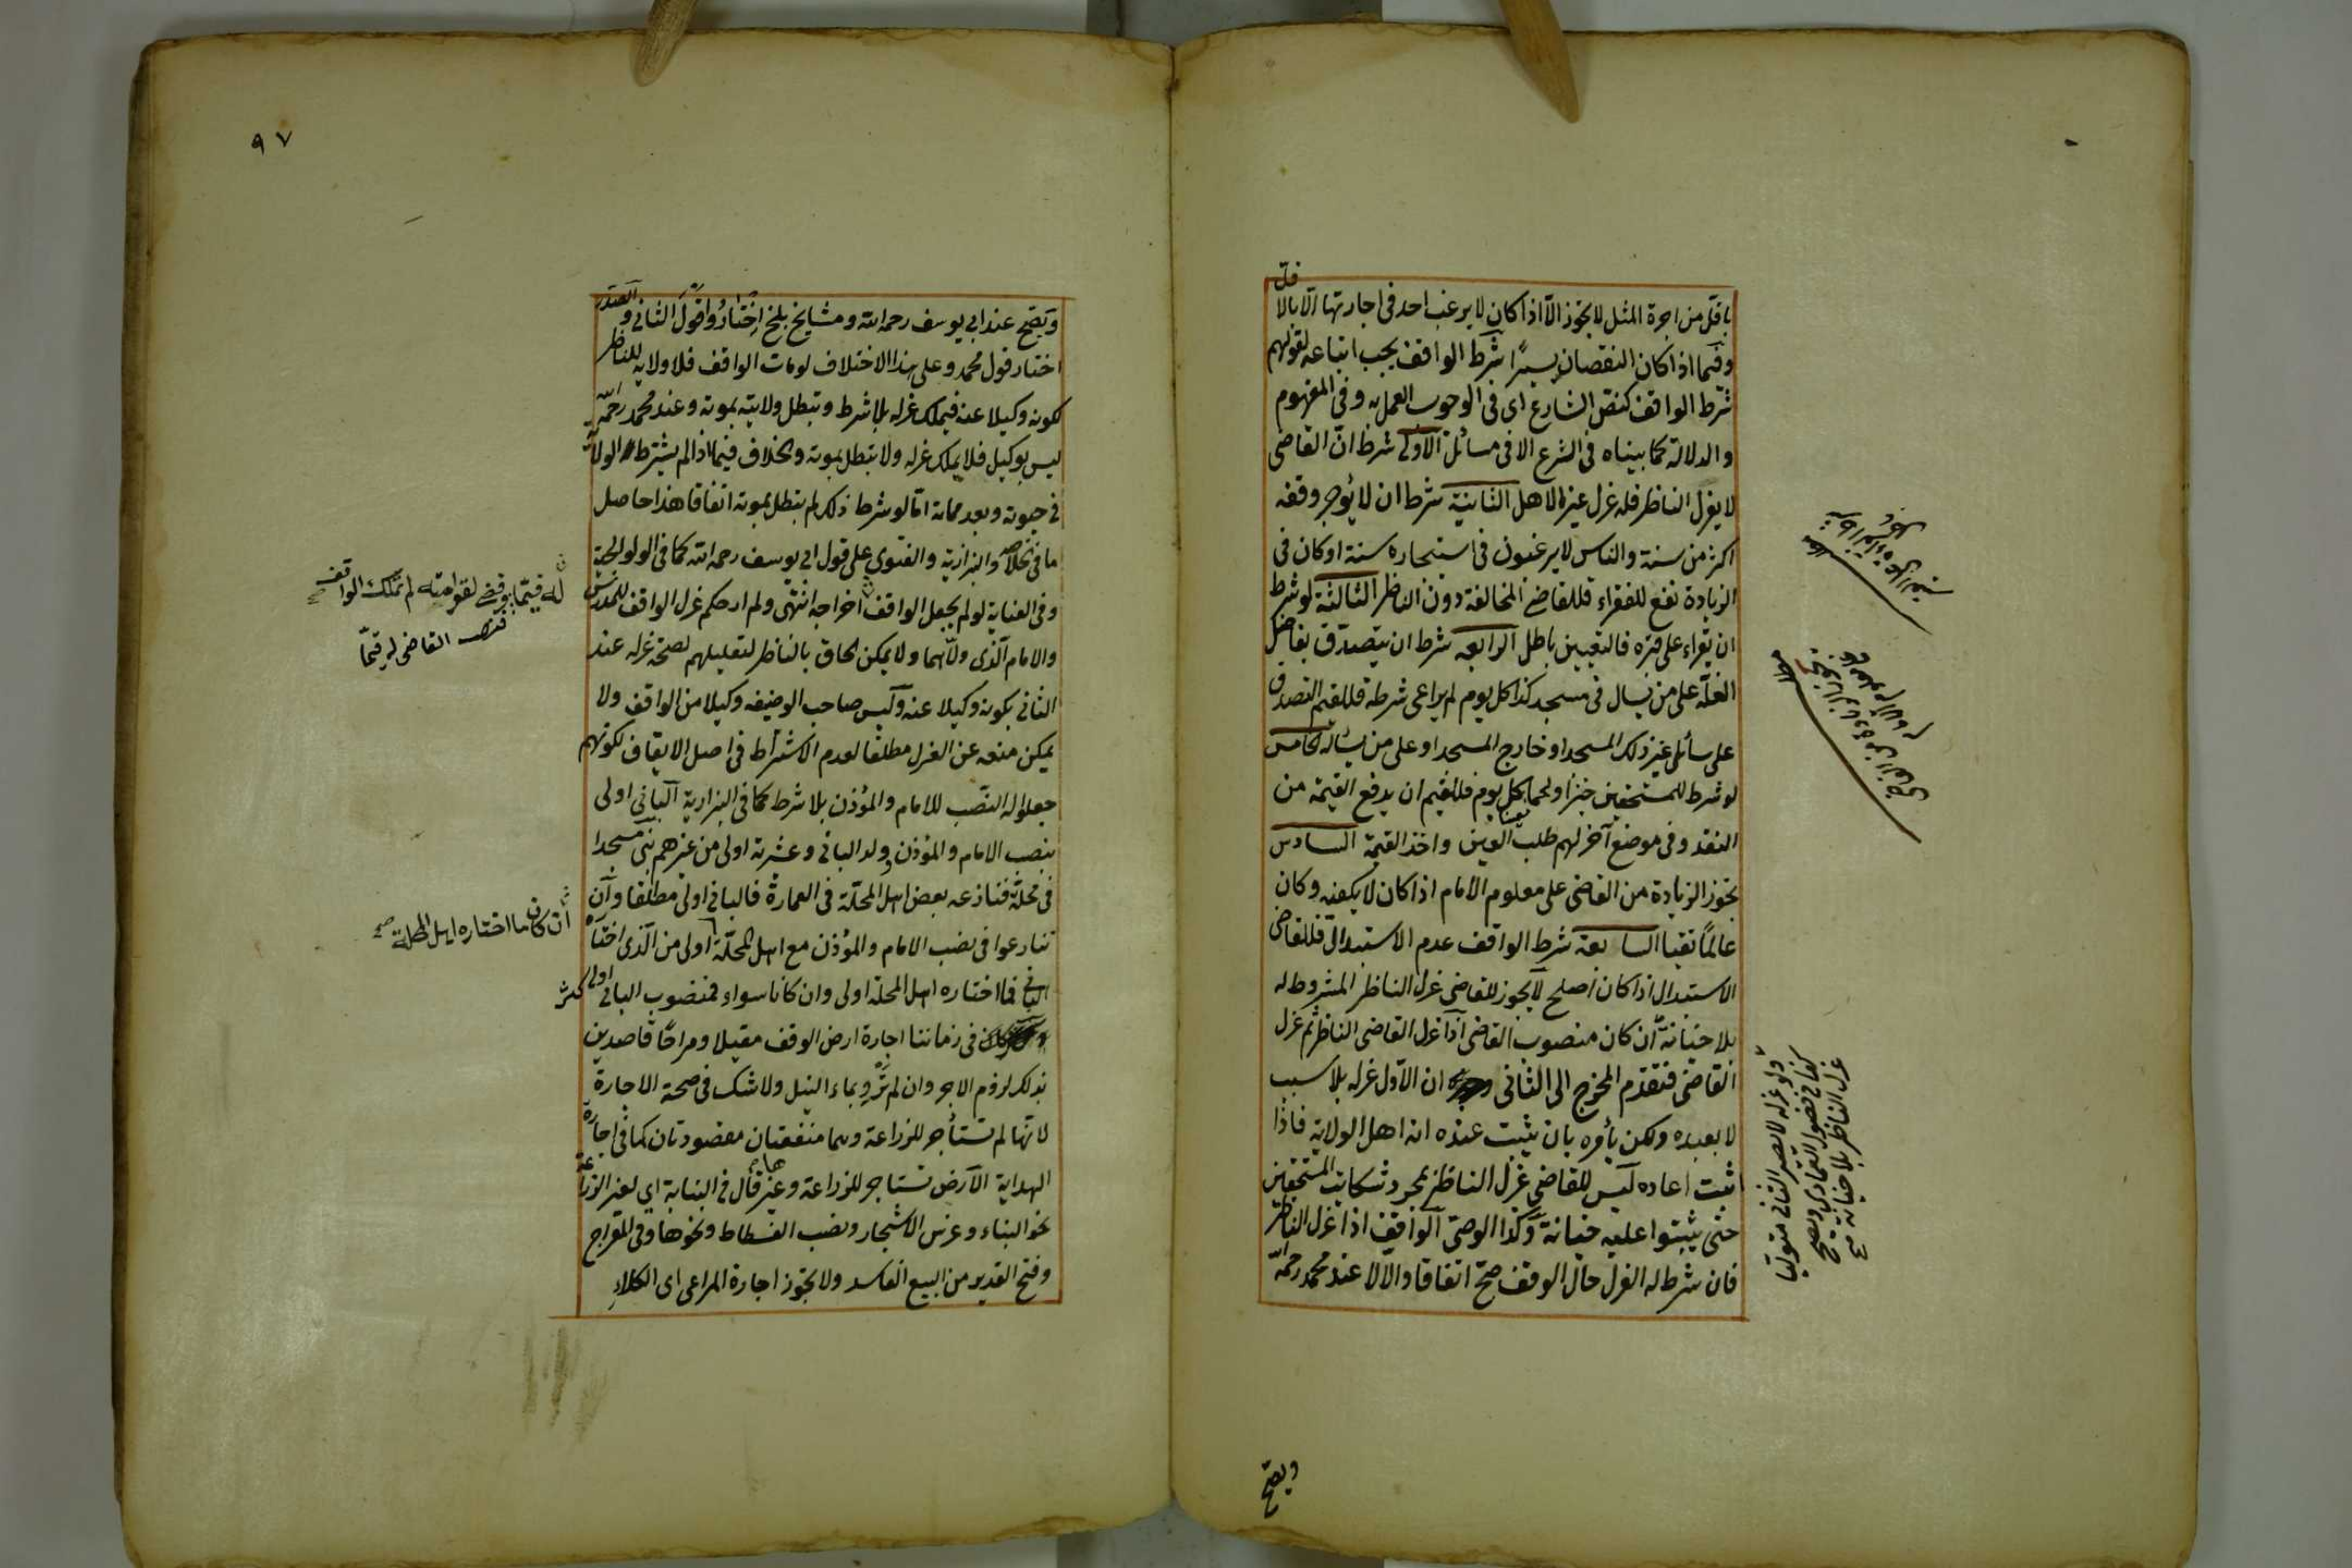 باقلّ من اجرة المثل لا يجوز الّا اذا كان لا يرغب احد فى اجارتها الّا بالاقلّ
وفيما اذا كان النقصان يسيرًا شرط الواقف يجب اتباعه لقولهم
شرط الواقف كنصّ الشارع اى فى الوجوب العمل به وفى المفهوم
والدلالة كما بيناه فى الشرع الا فى مسائل الأولى شرط انّ القاضى
لا يعزل الناظر فله عزل غير الاهل الثانية شرط ان لا يؤجر وقفه
اكثر من سنة والناس لا يرغبون فى استيجاره سنة او كان فى
الزيادة نفع للفقراء فللقاضى المخالفة دون الناظر الثالثة لو شرط
ان يقراء على قبره فالتعيين باطل الرابعة شرط ان يتصدّق بفاضل
الغلّة على من يسال فى مسجد كذا كل يوم لم يراعى شرطه فللقيم التصدق
على سائل غير ذلك المسجد او خارج المسجد او على من يسأله الخامس
لو شرط للمستحقين خبزا ولحما كل يوم فللقيم ان يدفع القيمة من
النقد وفى موضع آخر لهم طلب العين واخذ القيمة السادس
تجوز الزيادة من القاضى على معلوم الامام اذا كان لا يكفيه وكان
عالمًا تقيا السابعة شرط الواقف عدم الاستبدال فللقاضى
الاستبدال اذا كان اصلح لا يجوز للقاضى عزل الناظر المشروط له
بلا خيانة ان كان منصوب القاضى اذا عزل القاضى الناظر ثم عزل
القاضى فتقدّم المخرج الى الثانى ان الاول عزله بلا سبب
لا يعيده ولكن يأمره بان يثبت عنده انه اهل الولاية فاذا
اثبت اعاده ليس للقاضى عزل الناظر بمجرد شكايت المستحقين
حتى يثبتوا عليه خيانة وكذا الوصى الواقف اذا عزل الناظر
فان شرط له العزل حال الوقف صحّ اتفاقا والّا لا عند محمد رحمه
ولو عزله لا يصير الثانى متوليا
كذا فى فصول العمادى ويصح
عزل الناظر بلا خيانة
ويصح
٩٧
ويصح عند ابى يوسف رحمه الله ومشايخ بلخ اختاروا قول الثانى والصدر
اختار قول محمد وعلى هذا الاختلاف لو مات الواقف فلا ولاية للناظر
لكونه وكيلا عنه فيملك عزله بلا شرط وتبطل ولايته بموته وعند محمد رحمه الله
ليس بوكيل فلا يملك عزله ولا تبطل بموته والخلاف فيما اذا لم يشترط الولاية
فى حيوته وبعد مماته امّا لو شرط ذلك لم تبطل بموته اتفاقا هذا حاصل
ما فى الخلاصة والبزازية والفتوى على قول ابى يوسف رحمه الله كما فى الولوالجية
وفى العتابية لو لم يجعل الواقف اخراجه انتهى ولم ار حكم عزل الواقف للمدرس
والامام الّذى ولّاهما ولا يمكن الحاق بالناظر لتعليلهم لصحة عزله عند
الثانى بكونه وكيلا عنه وليس صاحب الوضيفه وكيلا من الواقف ولا
يمكن منعه عن العزل مطلقا لعدم الاشتراط فى اصل الايقاف لكونهم
جعلوا له النصب للامام والمؤذن بلا شرط كما فى البزازية البانى اولى
بنصب الامام والمؤذن وولد البانى وعشرته اولى من غيرهم بنى مسجدا
فى محلّة فنازعه بعض اهل المحلّة فى العمارة فالبانى اولى مطلقا وان
تنازعوا فى نصب الامام والمؤذن مع اهل المحلّة اولى من الّذى اختاره
البانى فما اختاره اهل المحلة اولى وان كانا سواء فمنصوب البانى اولى كثر
فى زماننا اجارة ارض الوقف مقيلا ومراحًا قاصدين
بذلك لزوم الاجر وان لم ترو بماء النيل ولا شك فى صحة الاجارة
لانّها لم تستأجر للزراعة وهما منفعتان مقصودتان كما فى اجارة
الهداية الارض تستاجر للزراعة وغيرها قال فى النهاية اى لغير الزراعة
نحو البناء وغرس الاشجار ونصب الفسطاط ونحوها وفى المعراج
وفتح القدير من البيع الفاسد ولا تجوز اجارة المراعى اى الكلاء
له قيّما لم تملك الواقف
القاضى له قيّما
ان كان ما اختاره اهل المحلة صح